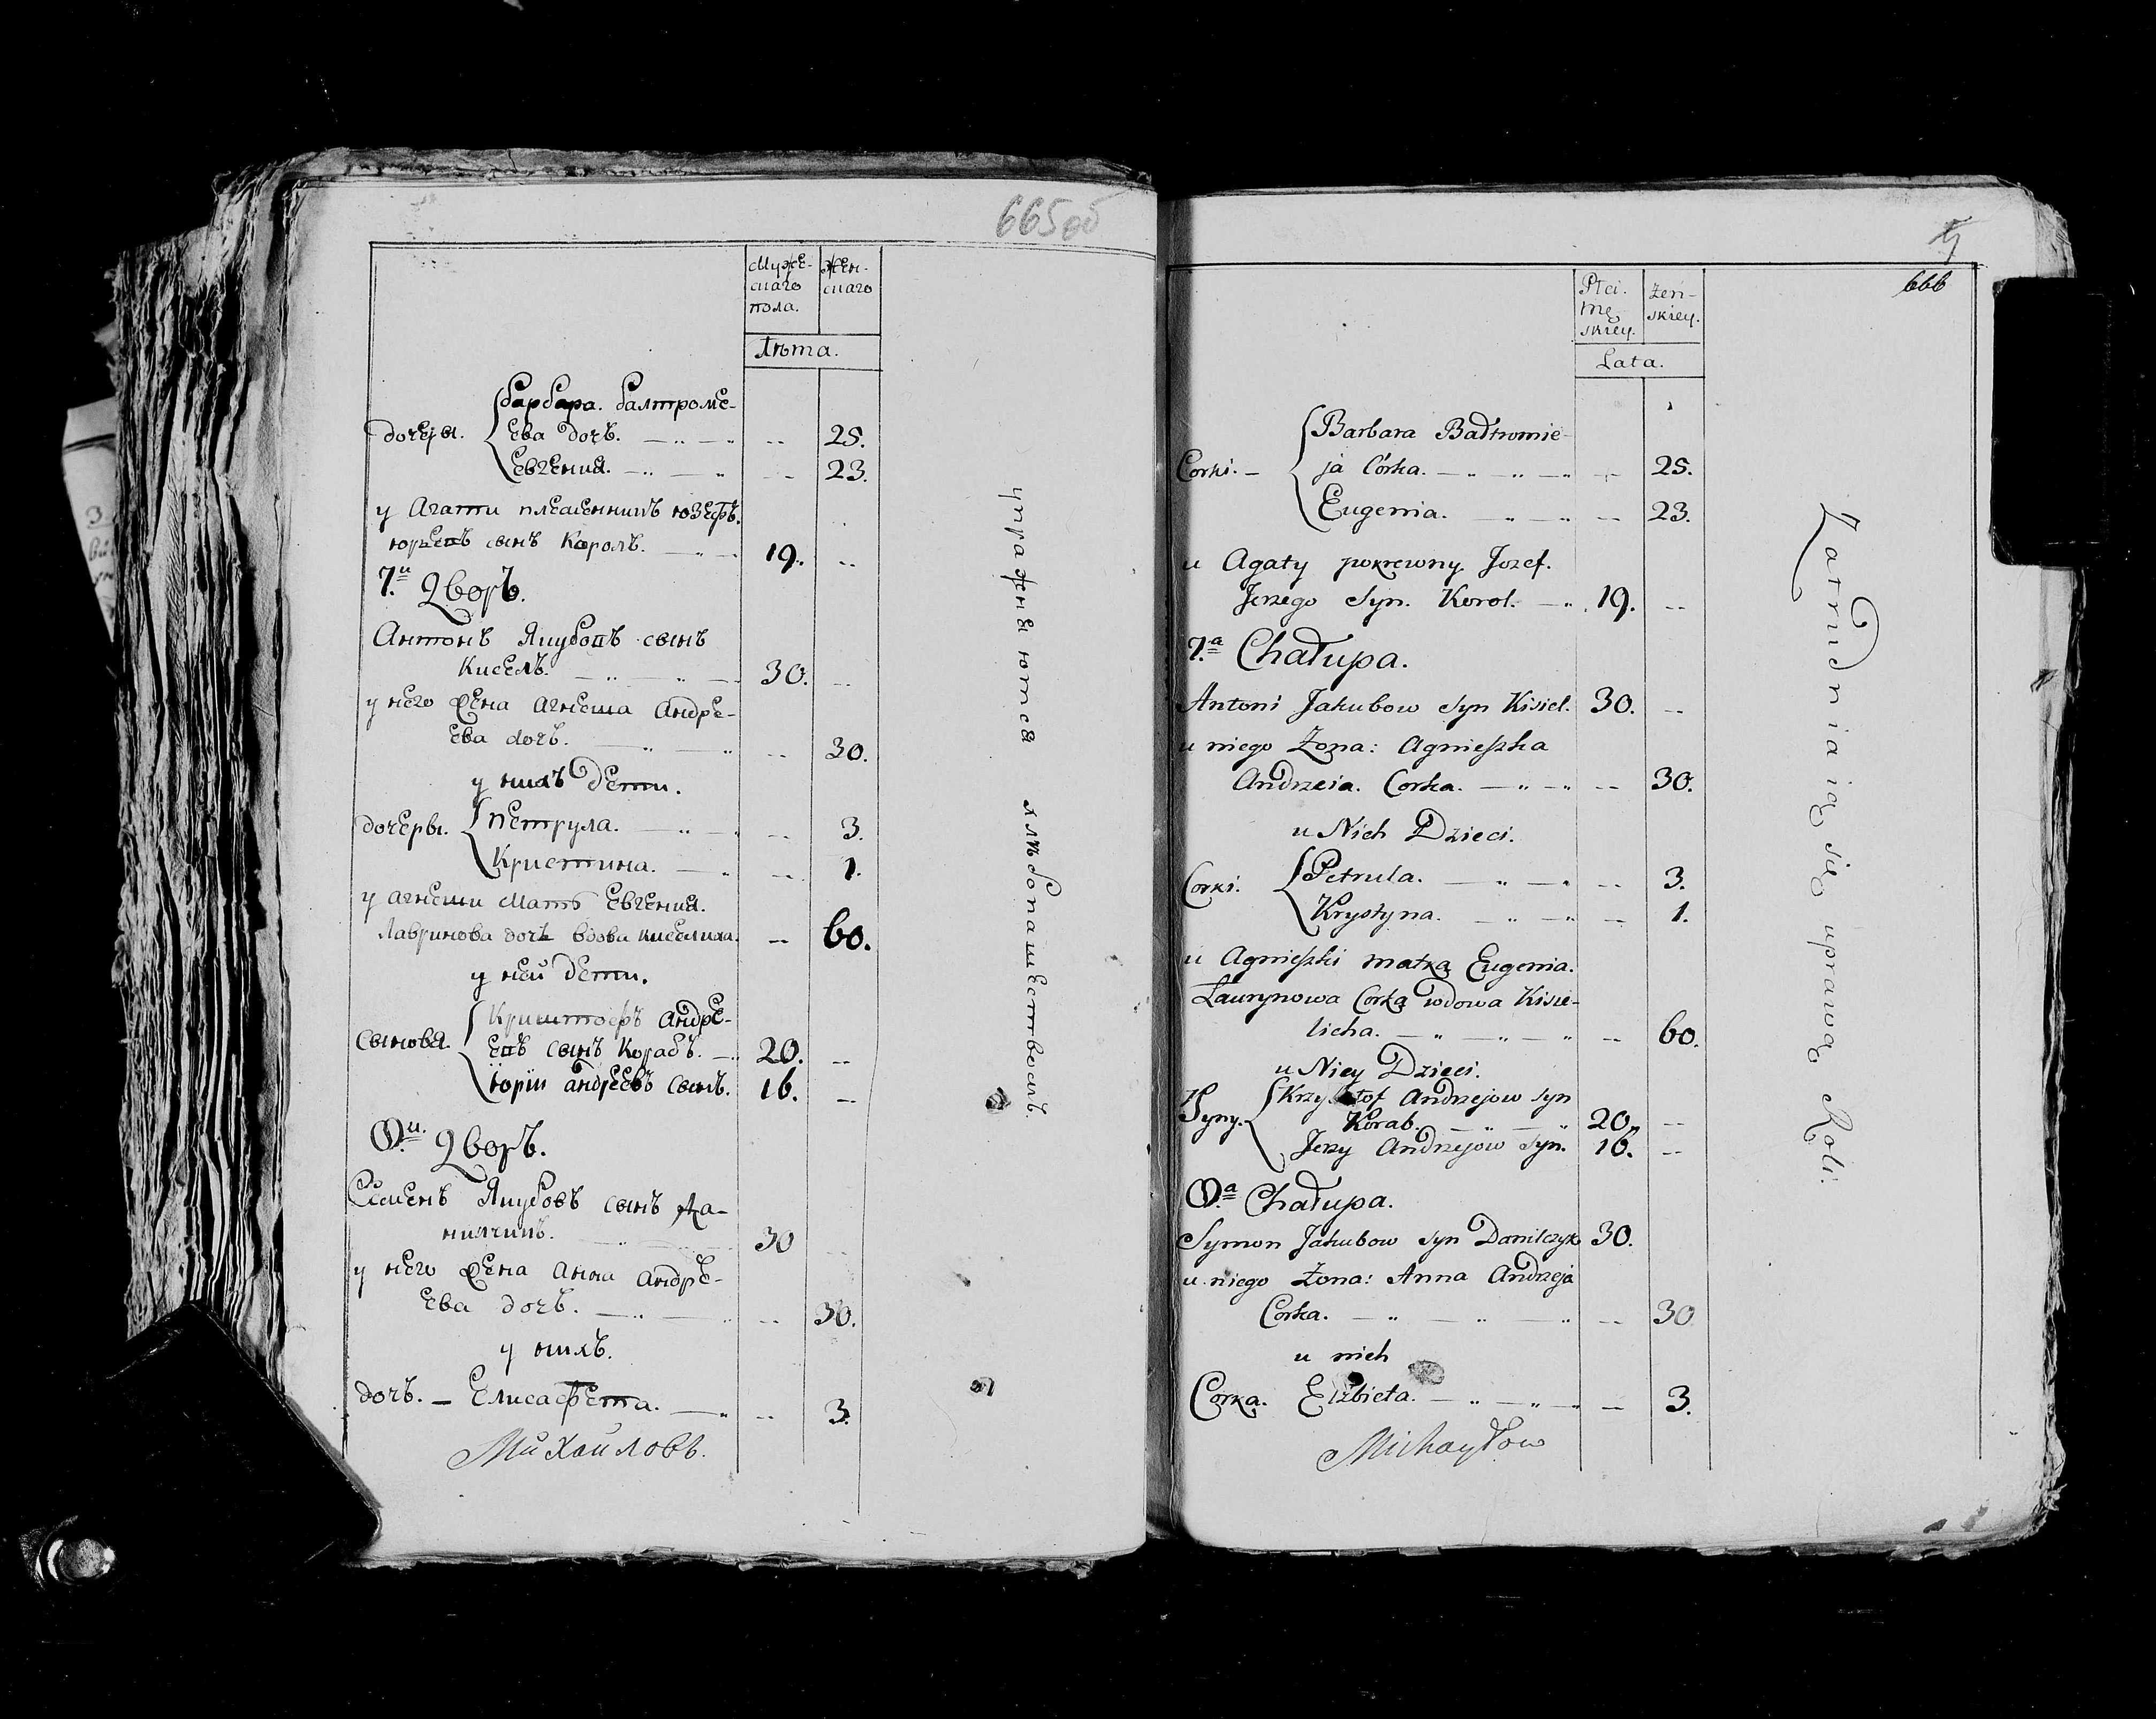 665об
Муже-
скаго
пола.
жен-
скаго
Лѣта.
дочеры.
Барбара. балтроме-
ева дочь. 25.
Евгения. 23.
у Агати племенникъ юзефъ.
юрьевъ сынъ Король. 19.
7.й Дворъ.
Антонъ Якубовъ сынъ
Кисель. 30.
у него жена Агнешка Андре-
ева дочь. 30.
у нихъ дети.
дочеры.
Петрула. 3.
Кристина. 1.
у агнешки Мать Евгения.
Лавринова дочь вдова киселиха. 60.
у ней дети.
сыновя.
Криштофъ Андре-
евъ сынъ Корабъ. 20.
Юрiи андреевъ сынъ. 16.
8.й Дворъ.
Семенъ Якубовъ сынъ Да-
нилчикъ. 30
у него жена Анна Андре-
ева дочь. 30.
у нихъ.
дочь. – Елисафета. 3.
Михайловъ.
упражняются хлѣбопашествомъ.
666
Płci.
Mę
skiey.
żeń-
skiey.
Lata.
Corki. –
Barbara Bałtromie-
ja Córka. 25.
Eugenia. 23.
u Agaty pokrewny Jozef.
Jerzego Syn. Korol. 19.
7.a Chałupa.
Antoni Jakubow syn Kisiel. 30.
u niego Żona: Agnieszka
Andrzeia. Corka. 30.
u Nich Dzieci.
Corki.
Petrula. 3.
Krystyna. 1.
u Agnieszki matka Eugenia.
Laurynowa Corka wdowa Kisie-
licha. 60.
u Niey Dzieci.
Syny.
Krzysztof Andrzejow syn
Korab. 20.
Jerzy Andrzejow syn. 16.
8.a Chałupa.
Symon Jakubow syn Danilczyk 30.
u niego Żona: Anna Andrzeja
Corka. 30
u nich
Corka. Elżbieta. 3.
Michayłow
Zatrudniaią się uprawą Roli.